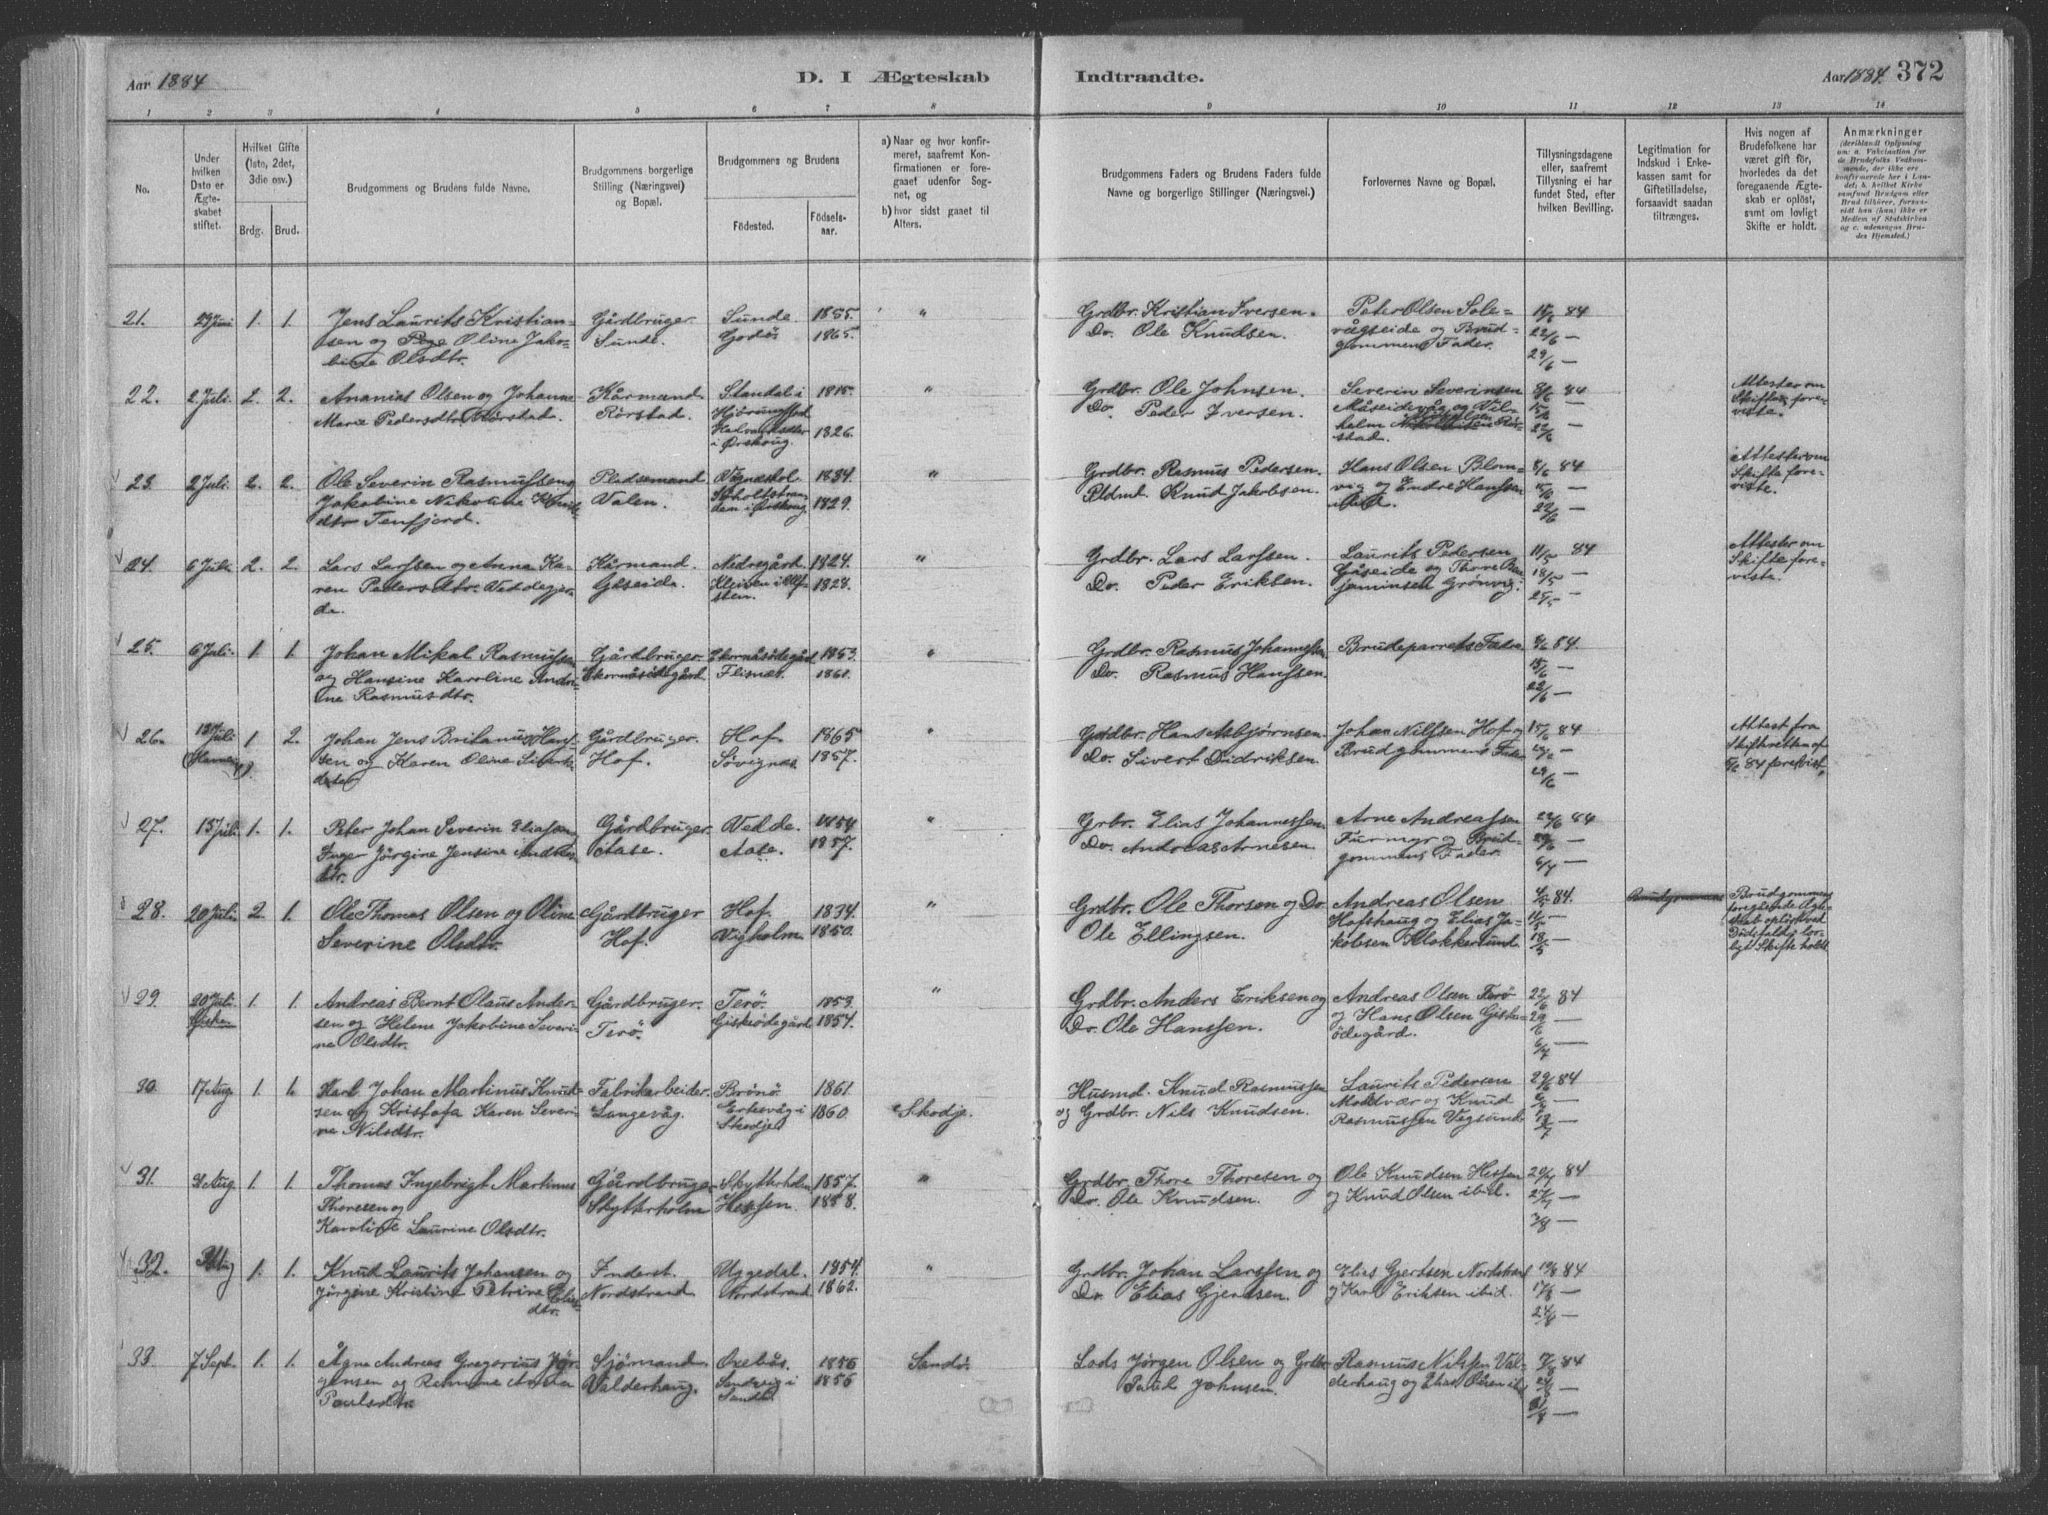 Aar 1884
D. I Ægteskab
Indtraadte.
Aar 1884. 372
1 2 3 4 5 6 7 8 9 10 11 12 13 14
No.
Under hvilken Dato er Ægteskabet stiftet.
Hvilket Gifte (1ste, 2det, 3die osv.)
Brdg. Brud.
Brudgommens og Brudens fulde Navne.
Brudgommens borgerlige Stilling (Næringsvei) og Bopæl.
Brudgommens og Brudens
Födested.
Födselsaar.
a) Naar og hvor konfirmeret, saafremt Konfirmationen er foregaaet udenfor Sognet, og
b) hvor sidst gaaet til Alters.
Brudgommens Faders og Brudens Faders fulde Navne og borgerlige Stillinger (Næringsvei.)
Forlovernes Navne og Bopæl.
Tillysningsdagene eller, saafremt Tillysning ei har fundet Sted, efter hvilken Bevilling.
Legitimation for Indskud i Enkekassen samt for Giftetilladelse, forsaavidt saadan tiltrænges.
Hvis nogen af Brudefolkene har været gift för, hvorledes da det foregaaende Ægteskab er oplöst, samt om lovligt Skifte er holdt.
Anmærkninger
21. 29 Juni 1. 1. Jens Laurits Kristian- Gårdbruger Sunde 1855. " Grdbr. Kristian Iversen. Peter Olsen Sole- 15/6 84
sen og Oline Jako- Sunde. Godö 1865. Do. Ole Knudsen. vågseide og Brud- 22/6 —
bine Olsdtr. gommens Fader. 29/6 —
22. 2 Juli. 2. 2. Ananias Olsen og Johanne Kårmand Standal i 1815. " Grdbr. Ole Johnsen. Severin Severinsen 8/6 84 Attester om
Marie Pedersdtr. Rörstad. Rörstad. Do. Peder Iversen. Måseidevåg og Vil- 15/6 Skifte fore-
i Ørskoug. 1826. helm Rör- 22/6 — viste.
stad.
23. 2 Juli. 2. 2. Ole Severin Rasmussen Pladsemand 1834 " Grdbr. Rasmus Pedersen. Hans Olsen Blom- 8/6 84 Attester om
Jakobine Nikoline Knuds- Valen. 1829. Pldmd. Knud Jakobsen. vig og Endre Hanssen 15/6 — Skifte fore-
dtr Tenfjord. ibid. 22/6 — viste.
24. 6 Juli 2. 2. Lars Larssen og Anna Ka- Kårmand Nedregård 1824. " Grdbr. Lars Larssen. Laurits Pedersen 11/5 84 Attester om
ren Pedersdtr. Veddegjer- Gåseide. 1828. Do. Peder Eriksen. Gåseide og Thore Ben- 18/5 — Skifte fore-
de. jaminsen Grönvig. 25/5 — viste.
25. 6 Juli. 1. 1. Johan Mikal Rasmussen Gårdbruger Ekornäsödegård 1853. " Grdbr. Rasmus Johannessen Brudeparrets Fædre 8/6 84
og Hansine Karoline Andri- Ekornäsödegård Flisnæs. 1861. Do. Rasmus Hanssen. 15/6 —
ne Rasmusdtr. 22/6 —
26. 13 Juli 1 2. Johan Jens Britanus Hans- Gårdbruger. Hof. 1865 " Grdbr. Hans Asbjørnsen Johan Nilssen Hof og 15/6 84 Attest fra
sen og Karen Oline Siverts- Hof. Sövignes 1857. Do. Sivert Didriksen. Brudgommens Fader 22/6 — Skifteretten af
datter 29/6 — 84 forevist.
27. 13 Juli. 1. 1. Peter Johan Severin Eliassen Gårdbruger. Vedde. 1854 " Grbr. Elias Johannessen. Arne Andreassen 22/6 84
Inger Jörgine Jensine Andreas- Aase. Aase. 1857. Do. Andreas Arnesen. Furmyr og Brud- 29/6 —
dtr. gommens Fader. 6/7 —
28. 20 Juli. 2. 1. Ole Thomas Olsen og Oline Gårdbruger Hof. 1834 " Grdbr. Ole Thorsen og Do Andreas Olsen 4/5 84. Brudgommens Brudgommens
Severine Olsdtr. Hof. Vigholm 1850. Ole Ellingsen. Hofshaug og Elias Ja- 11/5 — foregående Ægte-
kobsen Klokkersund. 18/5 — skab oplöst ved
Dödsfald og lov-
ligt Skifte holdt
29. 20 Juli. 1. 1. Andreas Bernt Olaus Ander- Gårdbruger. Terö. 1853. " Grdbr. Anders Eriksen og Andreas Olsen Terö 22/6 84
Giske sen og Helene Jakobine Severi- Terö Giskeödegård 1854. Do. Ole Hanssen. og Hans Olsen Giske- 29/6 —
ne Olsdtr. ödegård. 6/7 —
30. 17 Aug 1. 1. Karl Johan Martinus Knud- Fabrikarbeider Brönö 1861 Husmd. Knud Rasmussen Laurits Pedersen 29/6 84
sen og Kristofa Karen Severi- Langevåg. Erkevåg i 1860. Skodje. og Grdbr. Nils Knudsen. Moldvær og Knud 6/7 —
ne Nilsdtr. Skodje Rasmussen Vegsund. 13/7 —
31. Aug 1. 1. Thomas Ingebrigt Martinus Gårdbruger Skytterholm 1857. " Grdbr. Thore Thoresen og Ole Knudsen Hessen 20/7 84
Thoresen og Skytterholm Hessen. 1858. Do. Ole Knudsen. og Knud Olsen ibid. 27/7 —
Karoline Laurine Olsdtr. 3/8 —
32. Aug 1. 1. Knud Laurits Johansen og Inderst. Uggedal. 1854. " Grdbr. Johan Larssen og Elias Gjertsen Nordstrand 10/8 84
Jörgine Kristine Petrine Elias- Nordstrand. Nordstrand 1862. Do. Elias Gjertsen. og Karl Eriksen ibid. 17/8 —
dtr. 24/8 —
33. 7 Sept. 1. 1. Andreas Gregorius Jör- Sjömand Oxebås. 1856 Sandö. Lods Jörgen Olsen og Grdbr Rasmus Nilssen Val- 17/8 84
gensen og Valderhaug. Sandvig i 1856 Paul Johnsen. derhaug og Elias Olsen ibid 24/8 —
Paulsdtr Sandö 31/8 —